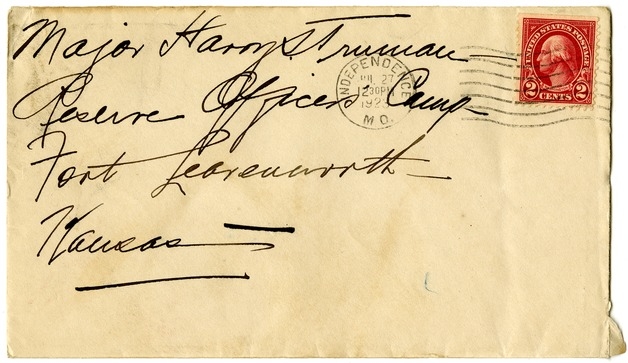 Major Harry S. Truman
Reserve Officers Camp
Fort Leavenworth
Kansas
INDEPENDENCE
JUL 27
12 30PM
1923
MO.
UNITED STATES POSTAGE
2 CENTS 2